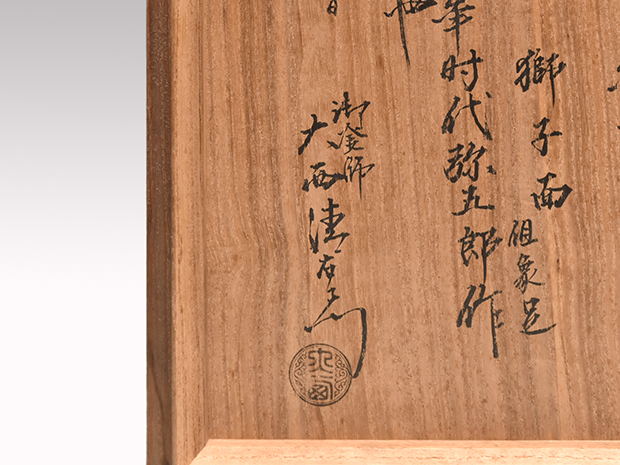 獅子面 但象足
时代弥五郎作
御釜師
大西清右衛門